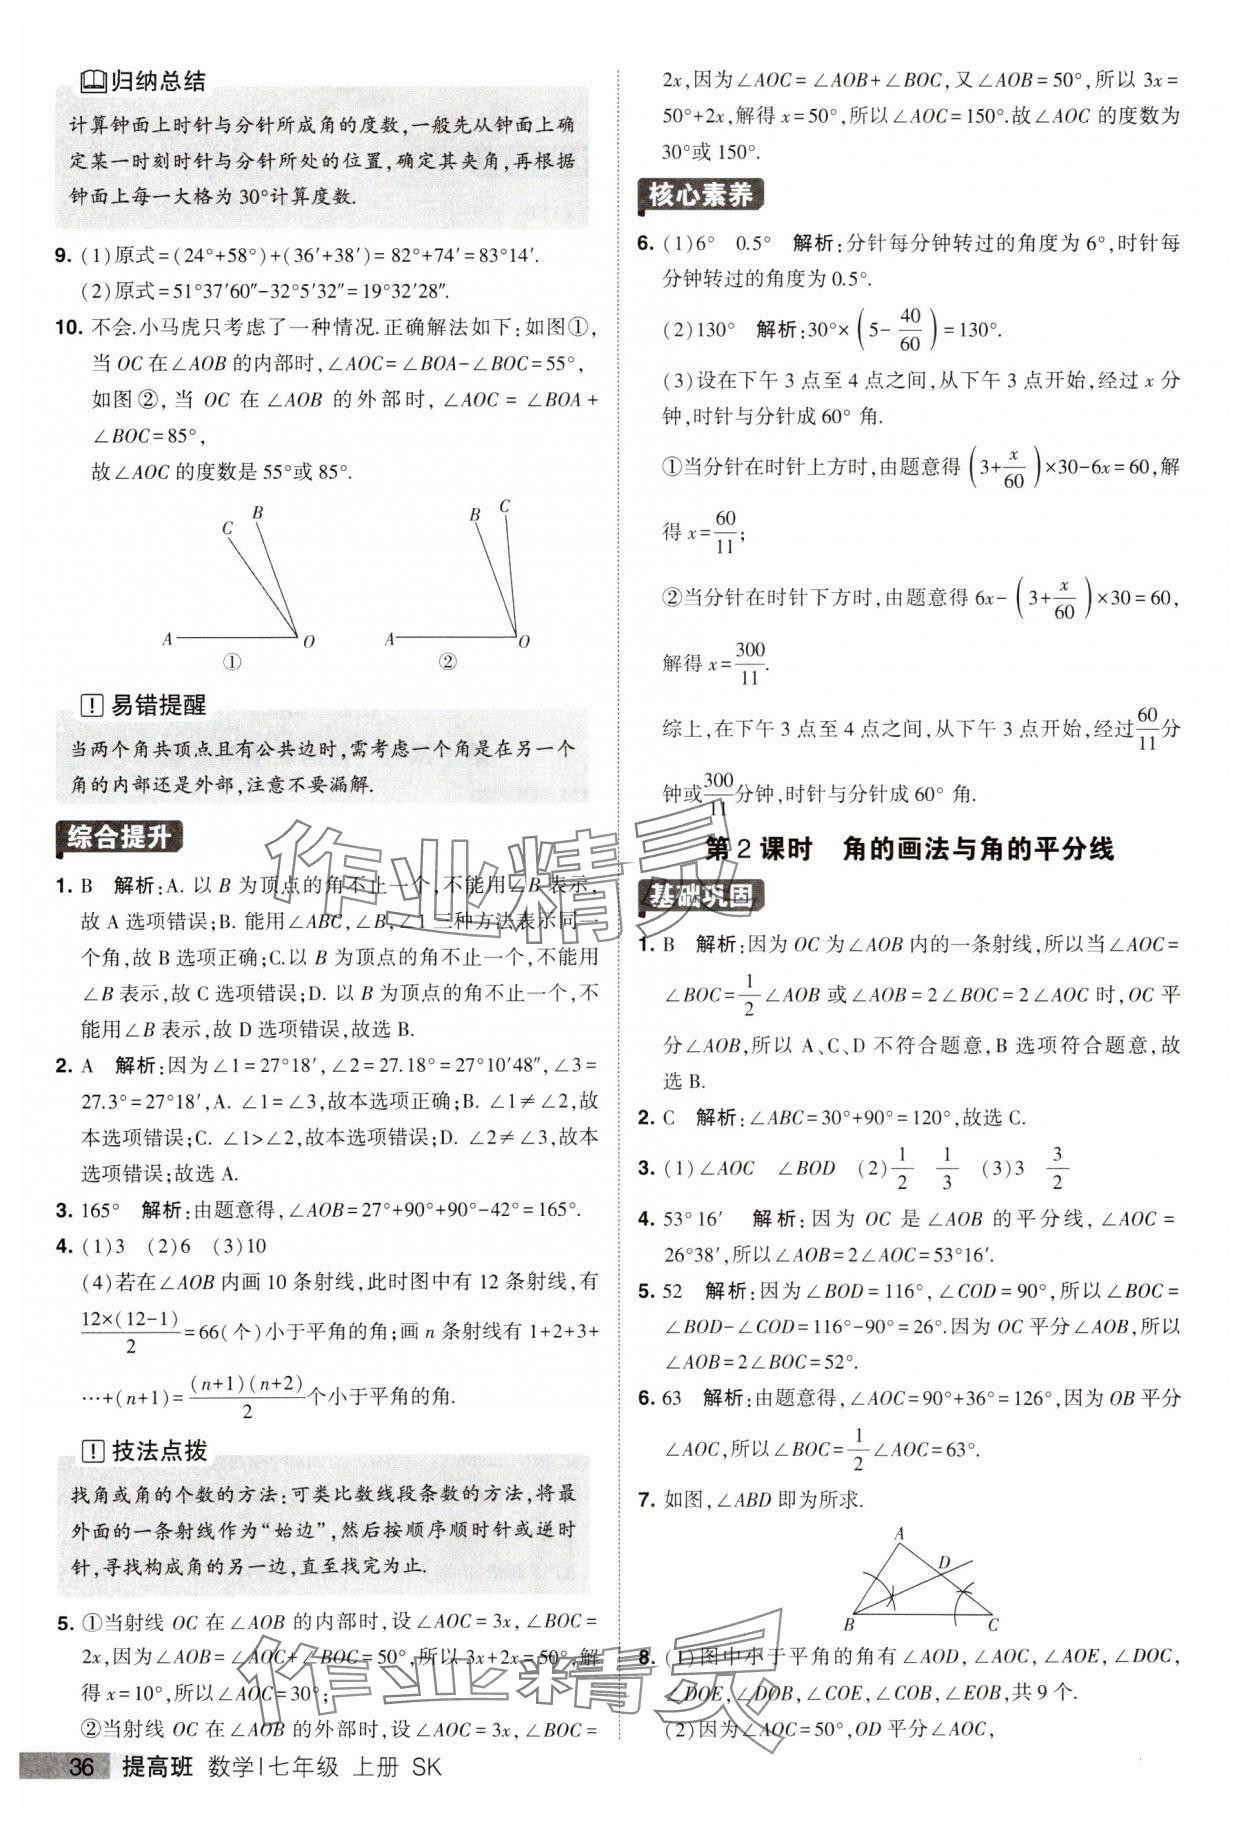 归纳总结
计算钟面上时针与分针所成角的度数,一般先从钟面上确
定某一时刻时针与分针所处的位置,确定其夹角,再根据
钟面上每一大格为30°计算度数.
9. (1)原式=(24°+58°)+(36′+38′)=82°+74′=83°14′.
(2)原式=51°37′60″-32°5′32″=19°32′28″.
10. 不会.小马虎只考虑了一种情况.正确解法如下:如图①,
当OC在∠AOB的内部时,∠AOC=∠BOA-∠BOC=55°,
如图②,当OC在∠AOB的外部时,∠AOC=∠BOA+
∠BOC=85°,
故∠AOC的度数是55°或85°.
C B A O ①
B C A O ②
! 易错提醒
当两个角共顶点且有公共边时,需考虑一个角是在另一个
角的内部还是外部,注意不要漏解.
综合提升
1. B 解析:A. 以B为顶点的角不止一个,不能用∠B表示,
故A选项错误;B. 能用∠ABC,∠B,∠1三种方法表示同一
个角,故B选项正确;C.以B为顶点的角不止一个,不能用
∠B表示,故C选项错误;D. 以B为顶点的角不止一个,不
能用∠B表示,故D选项错误,故选B.
2. A 解析:因为∠1=27°18′,∠2=27.18°=27°10′48″,∠3=
27.3°=27°18′,A. ∠1=∠3,故本选项正确;B. ∠1≠∠2,故
本选项错误;C. ∠1>∠2,故本选项错误;D. ∠2≠∠3,故本
选项错误;故选A.
3. 165° 解析:由题意得,∠AOB=27°+90°+90°-42°=165°.
4. (1)3 (2)6 (3)10
(4)若在∠AOB内画10条射线,此时图中有12条射线,有
12×(12-1)/2=66(个)小于平角的角;画n条射线有1+2+3+
…+(n+1)=(n+1)(n+2)/2个小于平角的角.
! 技法点拨
找角或角的个数的方法:可类比数线段条数的方法,将最
外面的一条射线作为“始边”,然后按顺序顺时针或逆时
针,寻找构成角的另一边,直至找完为止.
5. ①当射线OC在∠AOB的内部时,设∠AOC=3x,∠BOC=
2x,因为∠AOB=∠AOC+∠BOC=50°,所以3x+2x=50°,解
得x=10°,所以∠AOC=30°;
②当射线OC在∠AOB的外部时,设∠AOC=3x,∠BOC=
2x,因为∠AOC=∠AOB+∠BOC,又∠AOB=50°,所以3x=
50°+2x,解得x=50°,所以∠AOC=150°.故∠AOC的度数为
30°或150°.
核心素养
6. (1)6° 0.5° 解析:分针每分钟转过的角度为6°,时针每
分钟转过的角度为0.5°.
(2)130° 解析:30°×(5-40/60)=130°.
(3)设在下午3点至4点之间,从下午3点开始,经过x分
钟,时针与分针成60°角.
①当分针在时针上方时,由题意得(3+x/60)×30-6x=60,解
得x=60/11;
②当分针在时针下方时,由题意得6x-(3+x/60)×30=60,
解得x=300/11.
综上,在下午3点至4点之间,从下午3点开始,经过60/11分
钟或300/11分钟,时针与分针成60°角.
第2课时 角的画法与角的平分线
基础巩固
1. B 解析:因为OC为∠AOB内的一条射线,所以当∠AOC=
∠BOC=1/2∠AOB或∠AOB=2∠BOC=2∠AOC时,OC平
分∠AOB,所以A、C、D不符合题意,B选项符合题意,故
选B.
2. C 解析:∠ABC=30°+90°=120°,故选C.
3. (1)∠AOC ∠BOD (2)1/2 1/3 (3)3 3/2
4. 53°16′ 解析:因为OC是∠AOB的平分线,∠AOC=
26°38′,所以∠AOB=2∠AOC=53°16′.
5. 52 解析:因为∠BOD=116°,∠COD=90°,所以∠BOC=
∠BOD-∠COD=116°-90°=26°.因为OC平分∠AOB,所以
∠AOB=2∠BOC=52°.
6. 63 解析:由题意得,∠AOC=90°+36°=126°,因为OB平分
∠AOC,所以∠BOC=1/2∠AOC=63°.
7. 如图,∠ABD即为所求.
A D B C
8. (1)图中小于平角的角有∠AOD,∠AOC,∠AOE,∠DOC,
∠DOE,∠DOB,∠COE,∠COB,∠EOB,共9个.
(2)因为∠AOC=50°,OD平分∠AOC,
36 提高班 数学|七年级 上册 SK
作业精灵
作业精灵